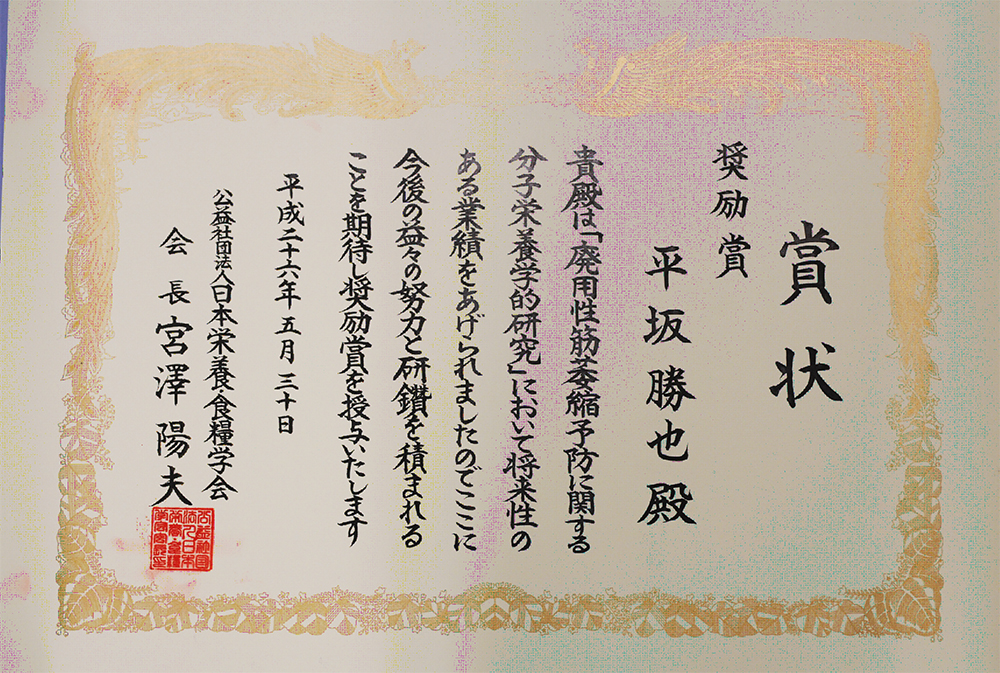 賞状
奨励賞
平坂勝也殿
貴殿は「廃用性筋萎縮予防に関する
分子栄養学的研究」において将来性の
ある業績をあげられましたのでここに
今後の益々の努力と研鑽を積まれる
ことを期待し奨励賞を授与いたします
平成二十六年五月三十日
公益社団法人日本栄養・食糧学会
会長宮澤陽夫